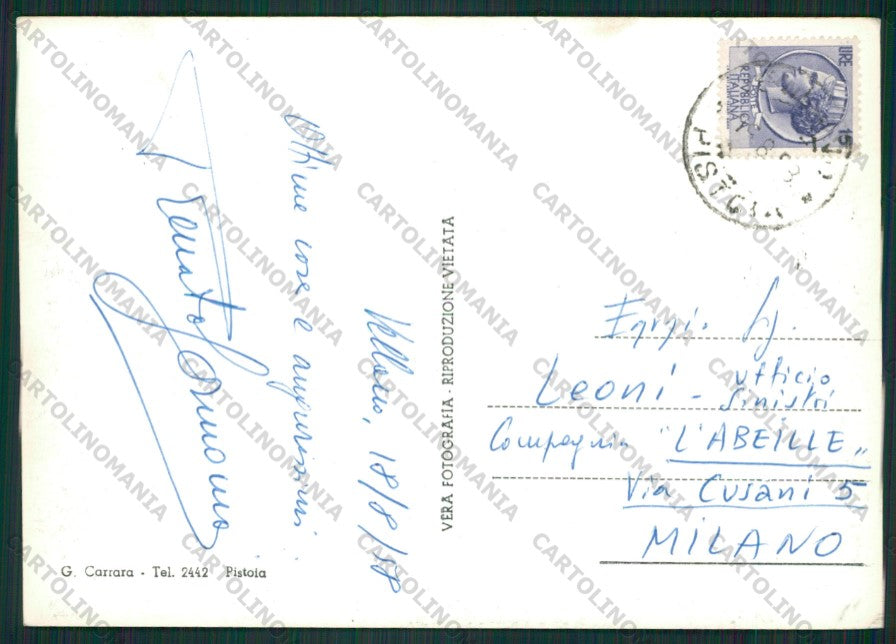 Vellano, 18/8/58
Ottime cose e augurissimi
Renato
G. Carrara - Tel. 2442 Pistoia
VERA FOTOGRAFIA - RIPRODUZIONE VIETATA
LIRE 15
REPVBBLICA
ITALIANA
PISTOIA
Egregi. Sig.
Leoni - ufficio
sinistri
Compagnia "L'ABEILLE"
Via Cusani 5
MILANO
CARTOLINOMANIA